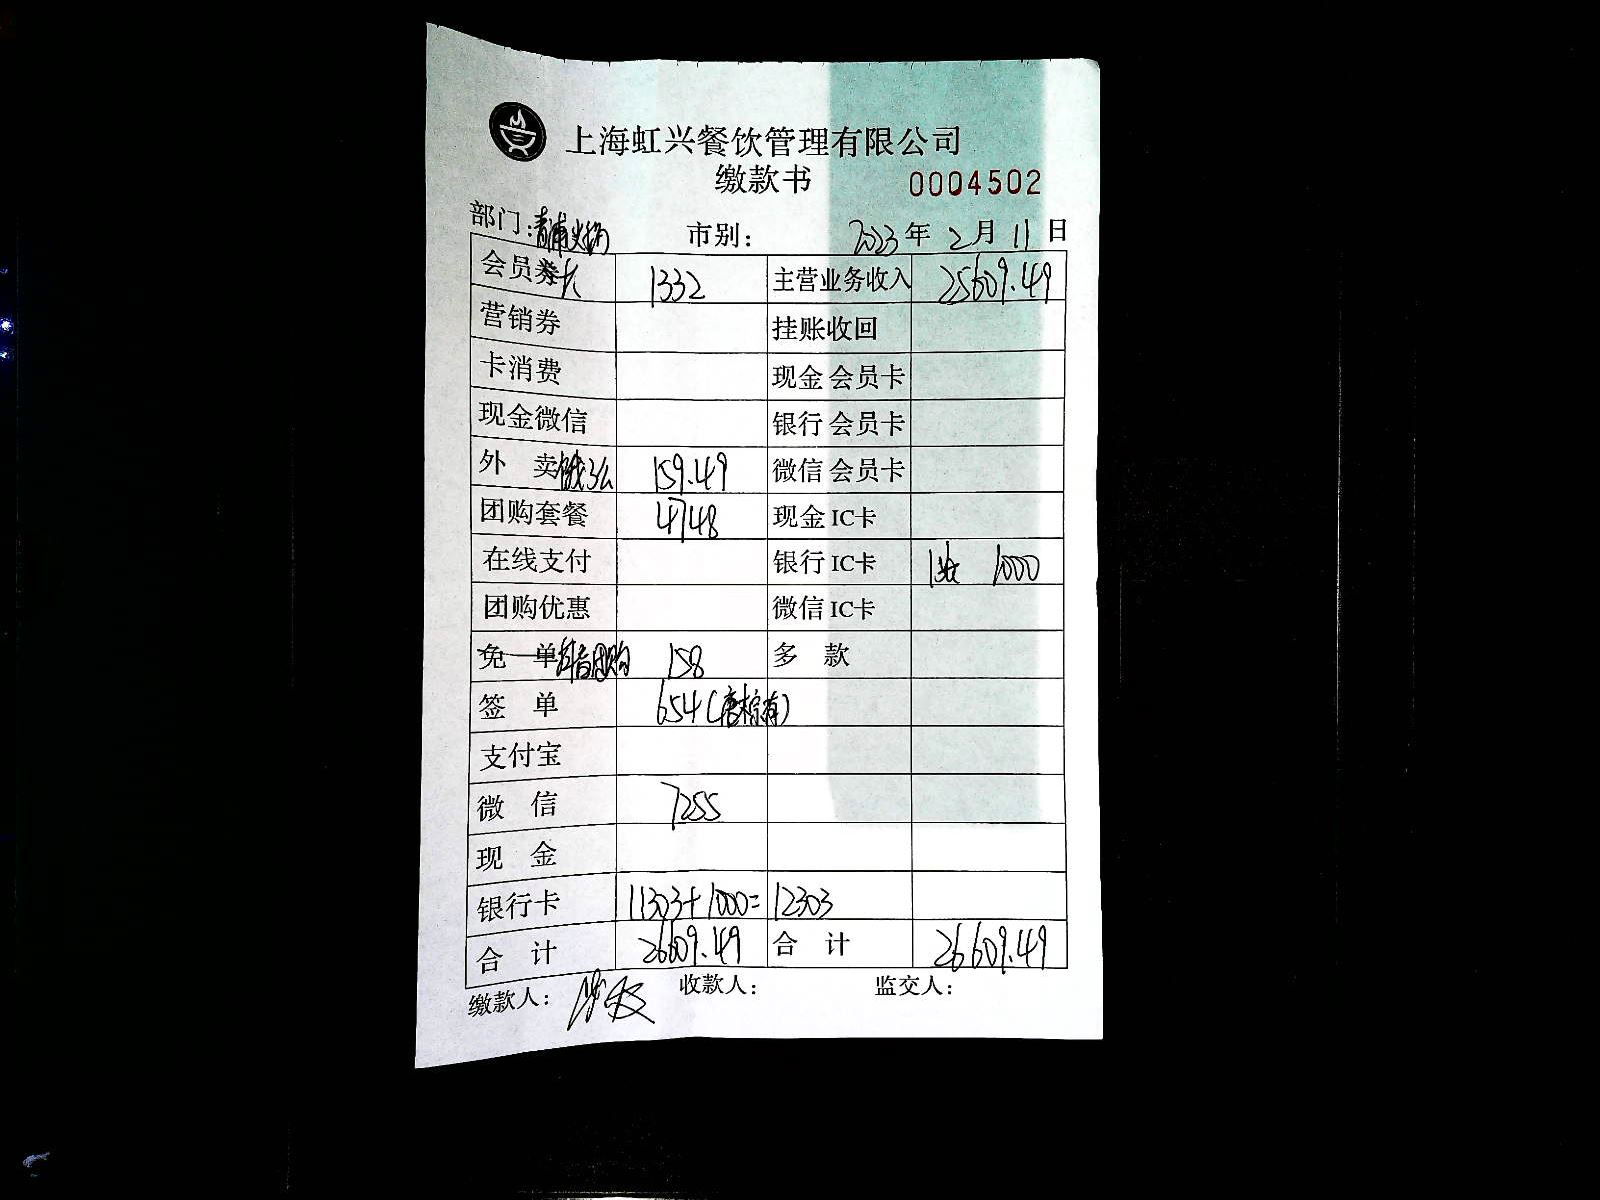 上海虹兴餐饮管理有限公司
缴款书 0004502
部门:青浦火锅 市别: 2023年2月11日
会员券 1332 主营业务收入 25609.49
营销券 挂账收回
卡消费 现金会员卡
现金微信 银行会员卡
外 卖饿了么 159.49 微信会员卡
团购套餐 4748 现金IC卡
在线支付 银行IC卡 1张 1000
团购优惠 微信IC卡
免 单抖音团购 158 多 款
签 单 654
支付宝
微 信 7255
现 金
银行卡 11303+1000=12303
合 计 26609.49 合 计 26609.49
缴款人: 收款人: 监交人: